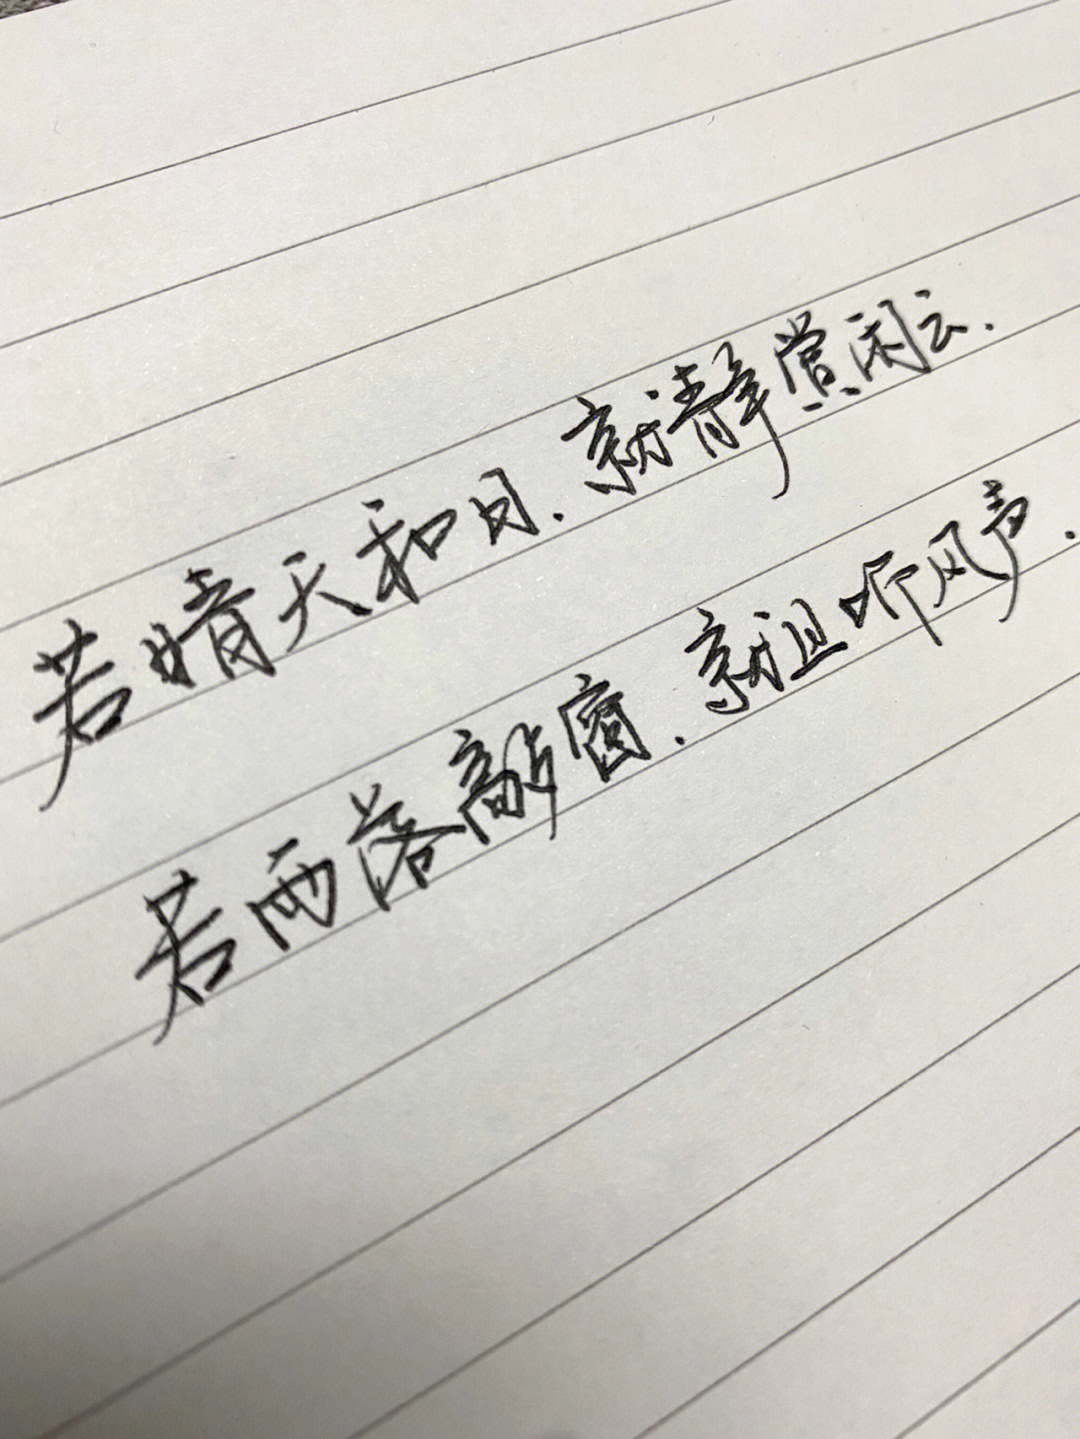 若晴天和日.就静赏闲云.
若雨落敲窗.就且听风声.